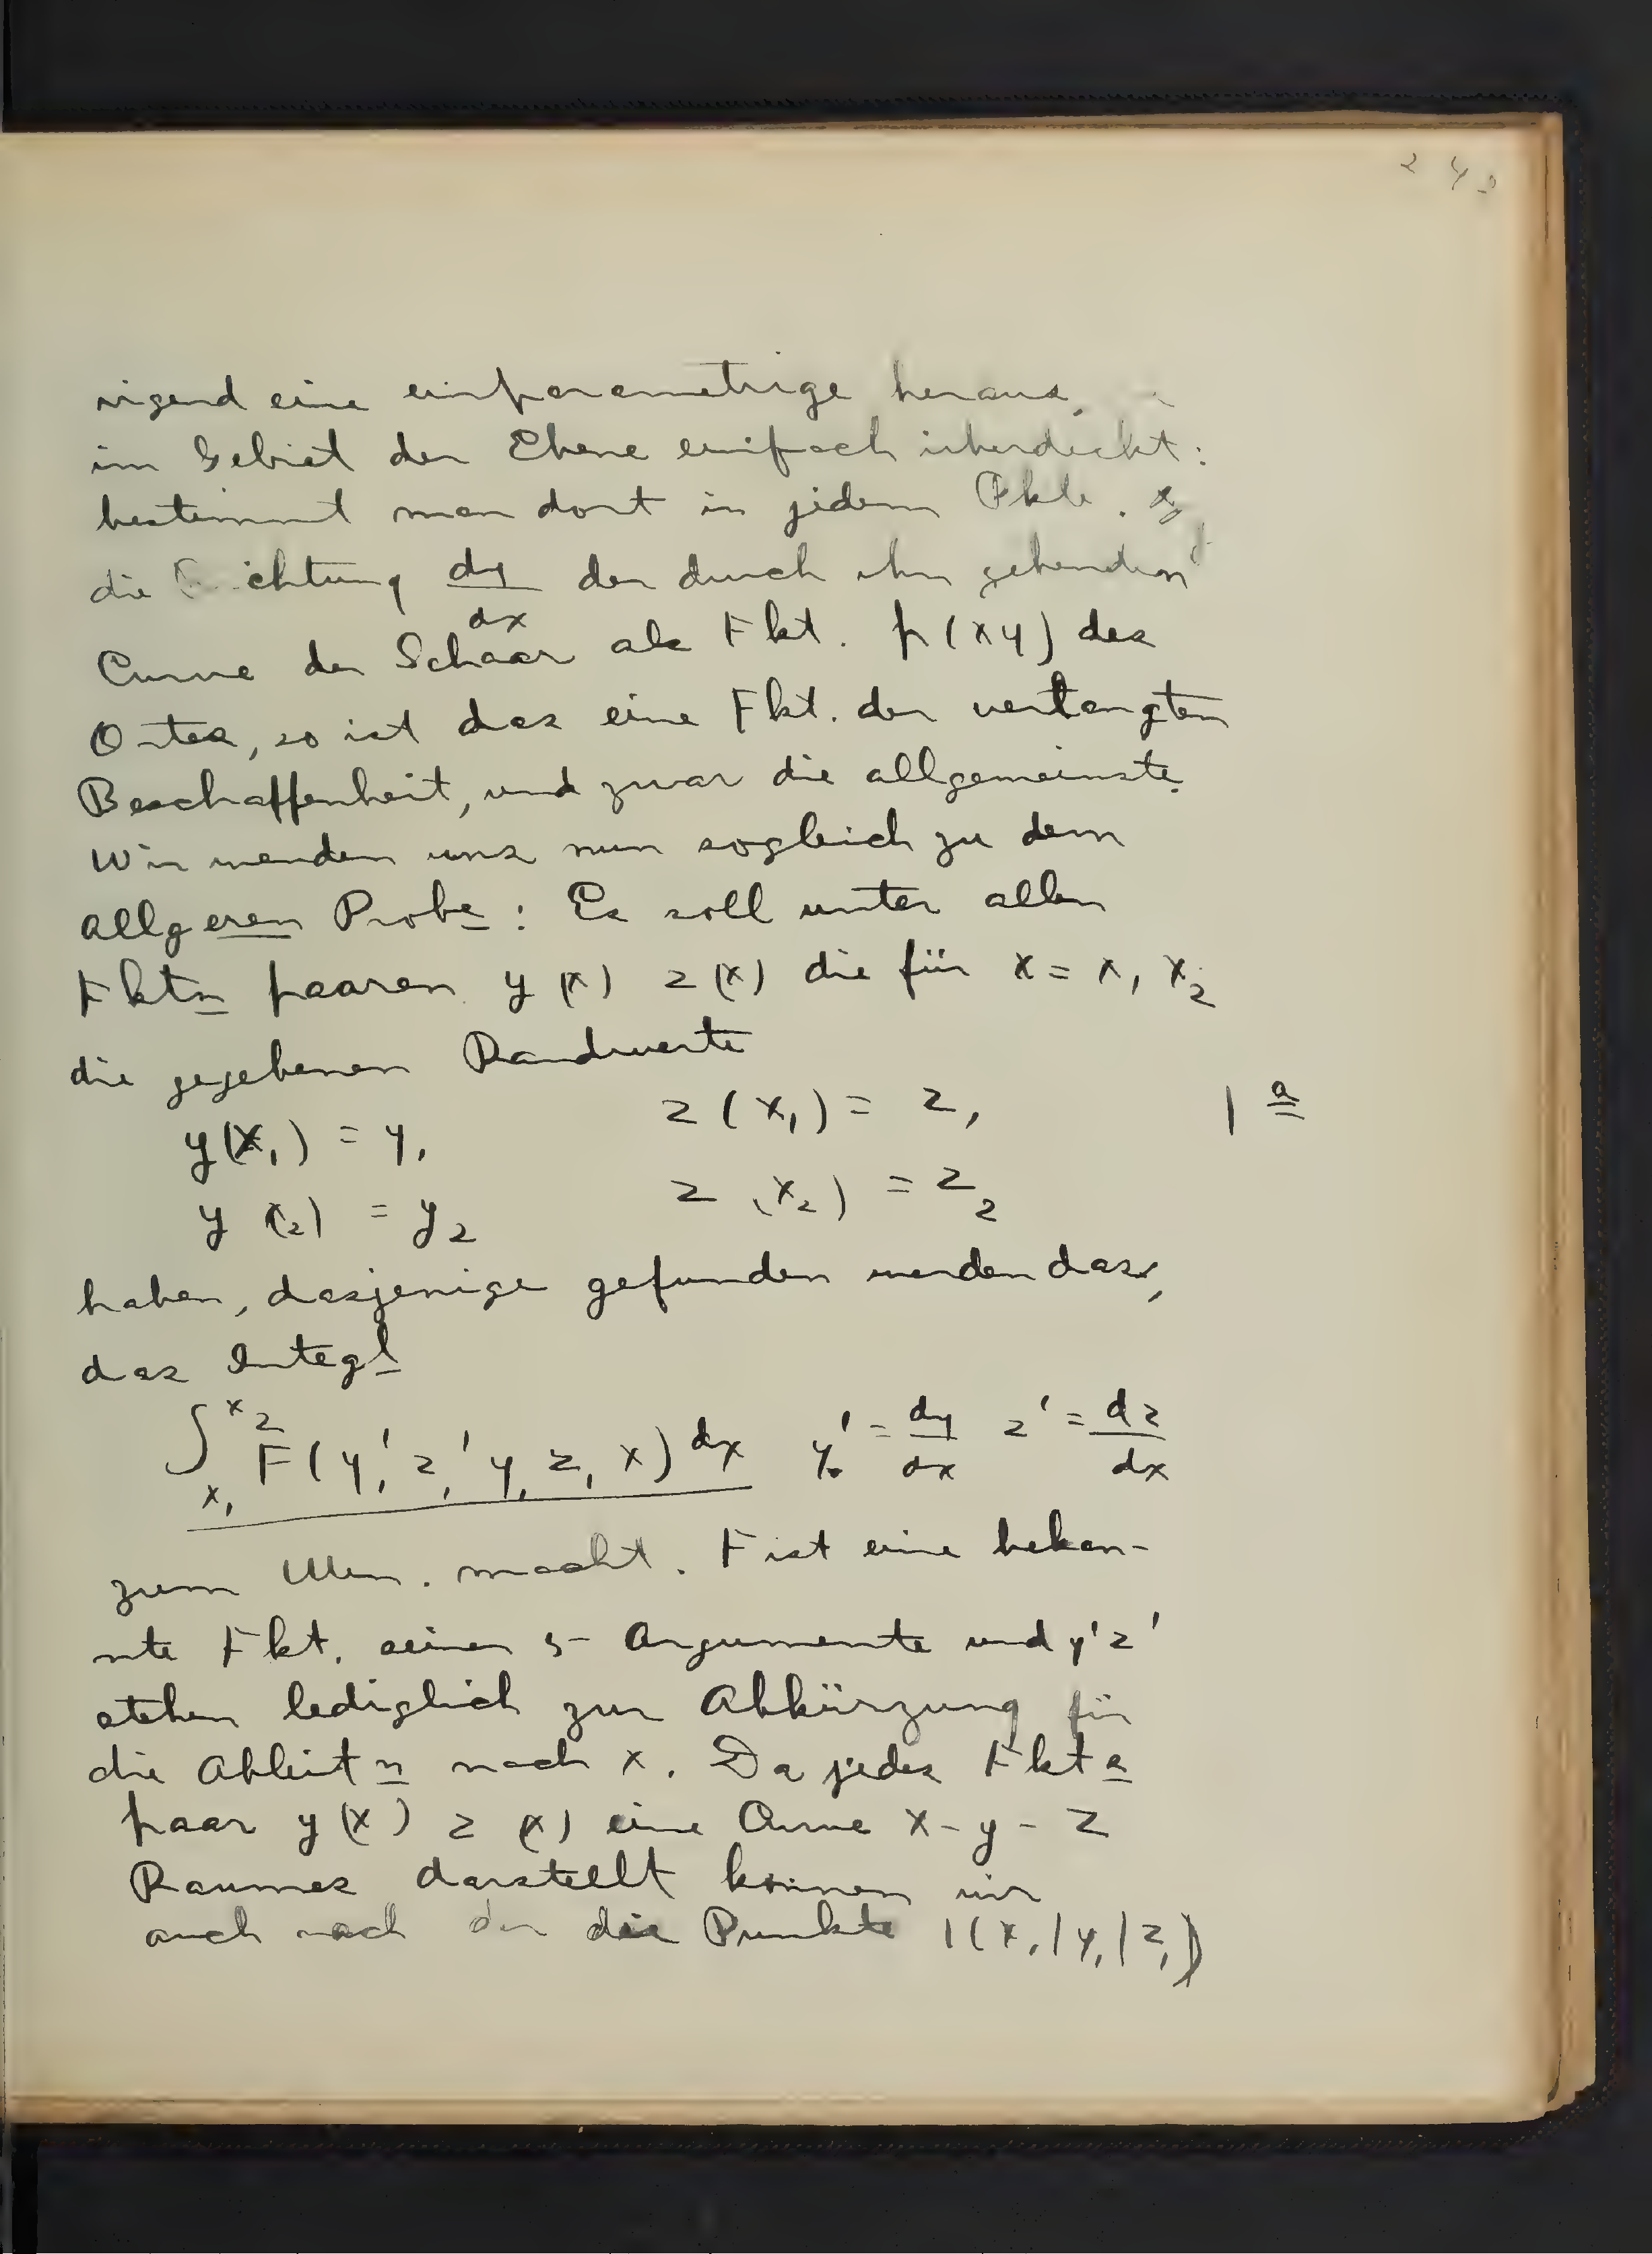 irgend eine einparametrige heraus,
im Gebiet der Ebene einfach überdeckt:
bestimmt man dort in jedem Pkte.
die Richtung dy/dx der durch ihn gehenden
Curve der Schaar als Fkt. p(xy) des
Ortes, so ist das eine Fkt. der verlangten
Beschaffenheit, und zwar die allgemeinste.
Wir wenden uns nun sogleich zu dem
allgeren Probe: Es soll unter allen
Fktn paaren y(x) z(x) die für x = x₁ x₂
die gegebenen Randwerte
y(x₁) = y₁ z(x₁) = z₁ | a
y(x₂) = y₂ z(x₂) = z₂
haben, dasjenige gefunden werden das,
das Integl
∫_{x₁}^{x₂} F(y', z', y, z, x) dx y' = dy/dx z' = dz/dx
zum Min. macht. F ist eine bekan-
nte Fkt. seiner 5- Argumente und y' z'
stehen lediglich zur Abkürzung für
die Ableitn nach x. Da jedes Fkts
paar y(x) z(x) eine Curve x-y-z
Raumes darstellt können wir
auch nach der die Punkte 1(x₁|y₁|z₁)